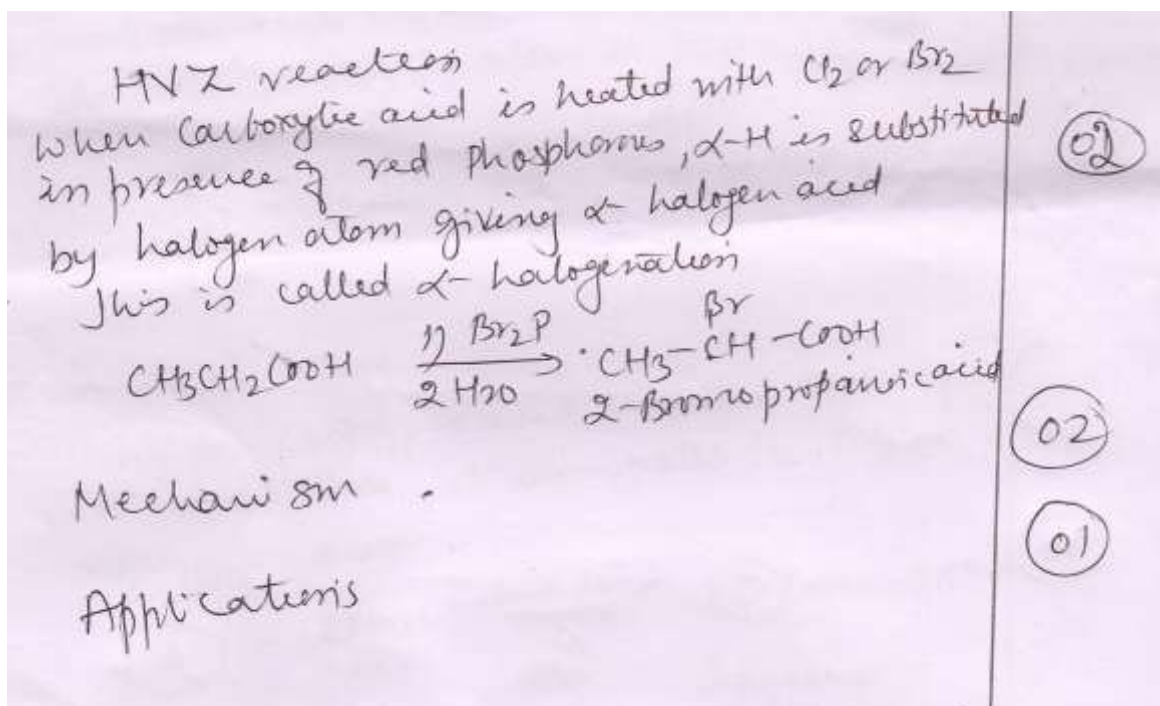 HVZ reaction
When Carboxylic acid is heated with Cl2 or Br2
in presence of red Phosphorous, α-H is substituted
02
by halogen atom giving α- halogen acid
This is called α- halogenation
CH3CH2COOH 1) Br2P CH3-CH-COOH
2 H2O Br
2-Bromo propanoic acid
02
Mechanism .
01
Applications